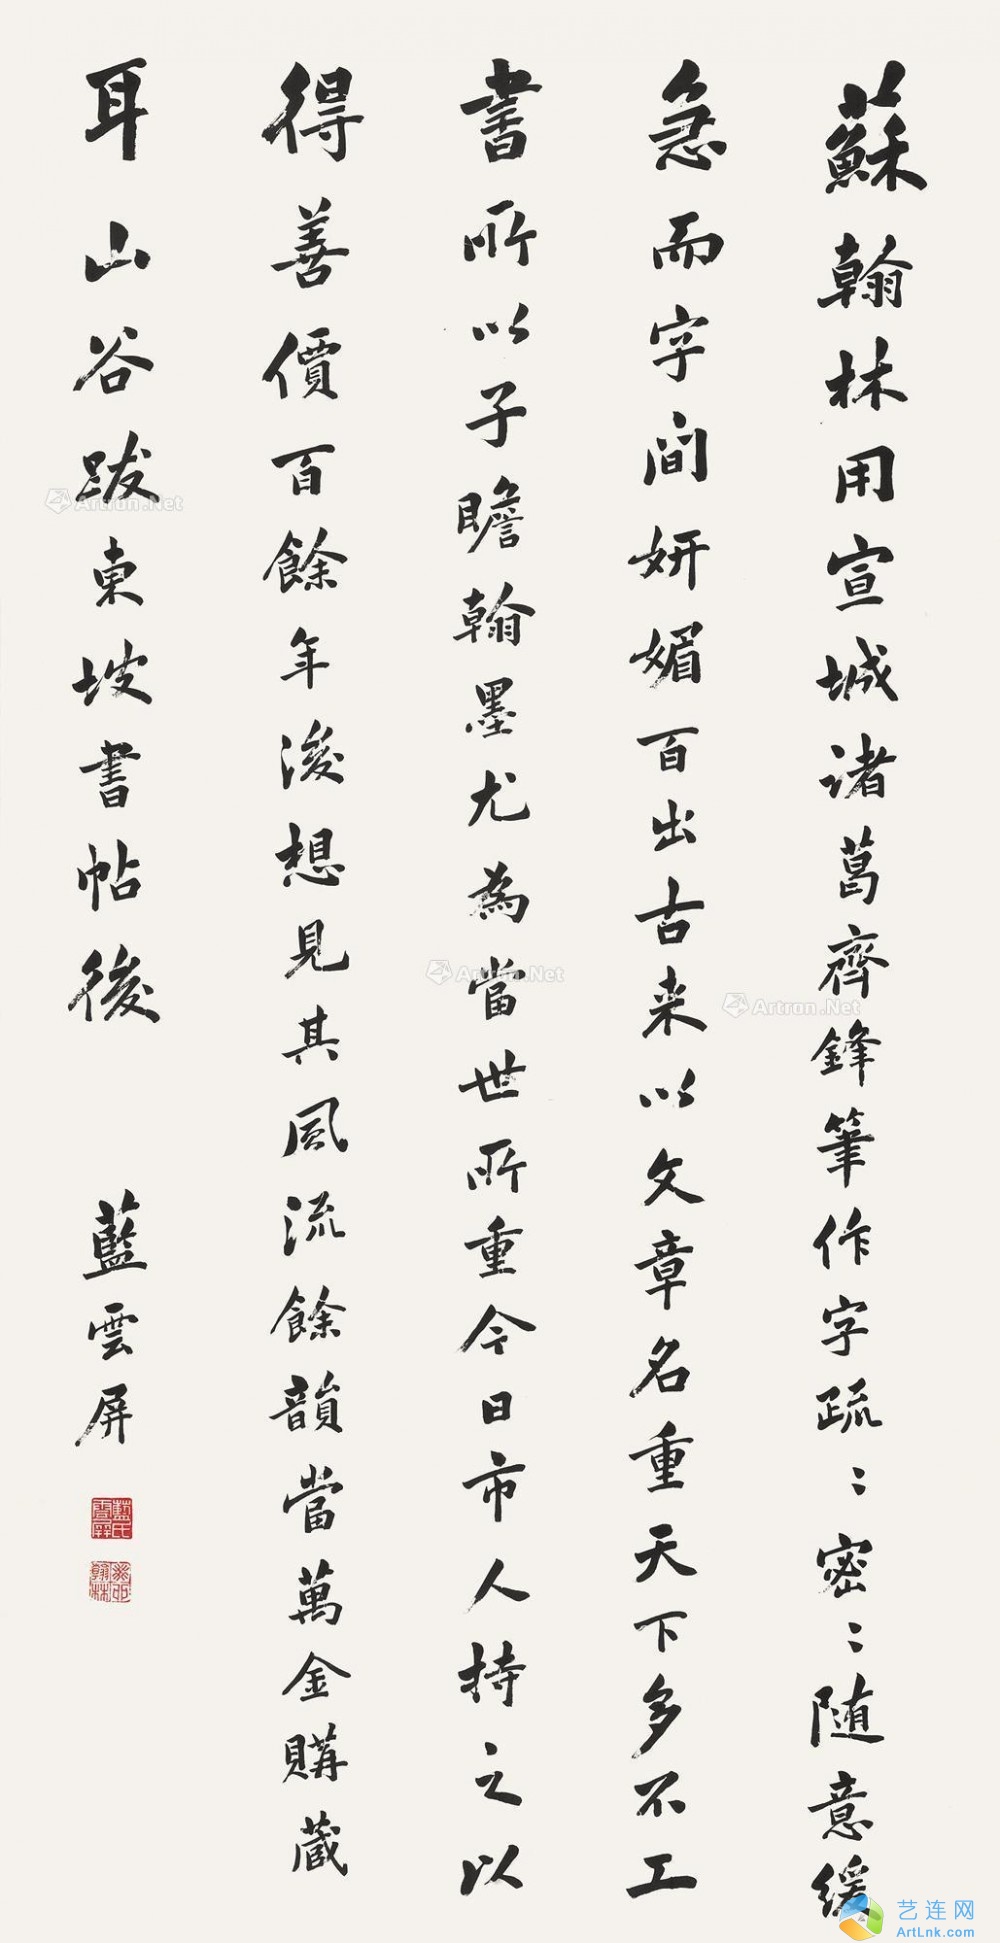 蘇翰林用宣城诸葛齊鋒筆作字疏〻密〻随意緩
急而字间妍媚百出古来以文章名重天下多不工
書所以子瞻翰墨尤為當世所重今日市人持之以
得善價百餘年後想見其風流餘韻當萬金購蔵
耳山谷跋東坡書帖後
藍雲屏
藍氏雲屏
翰林
Artron.Net
Artron.Net
Artron.Net
艺连网
ArtLnk.com